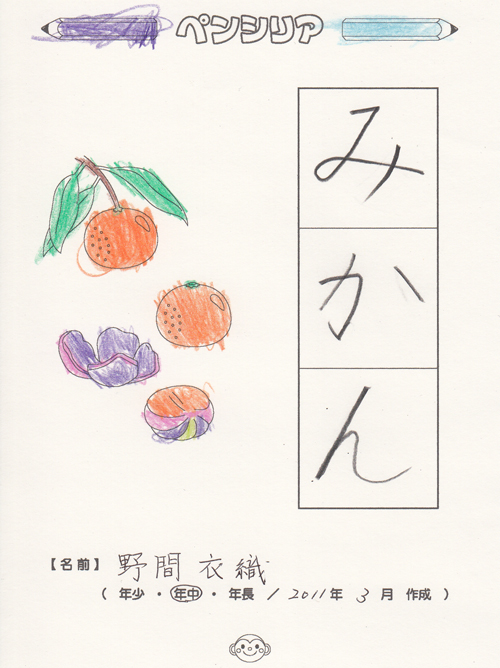 ペンシリア
みかん
【名前】 野間 衣織
( 年少 ・ 年中 ・ 年長 / 2011年 3月 作成 )